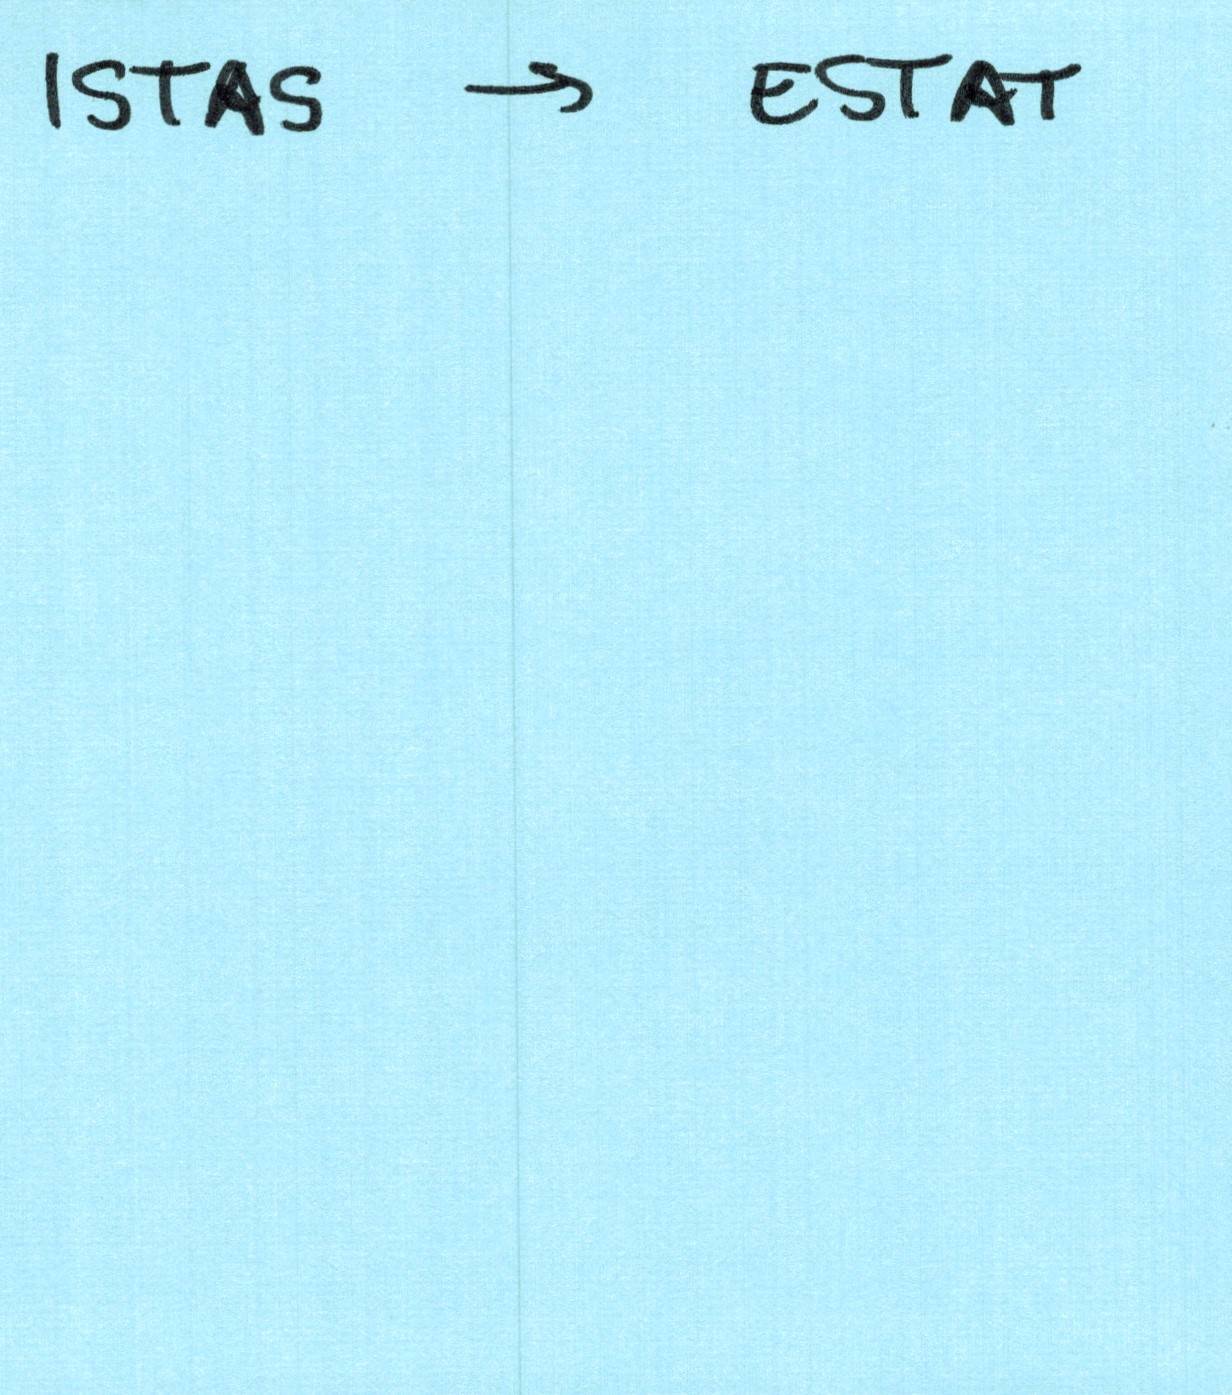 ISTAS → ESTAT